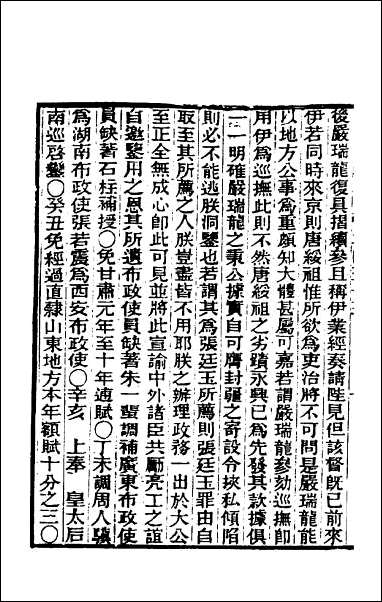 後嚴瑞龍復具摺續參且稱伊業經奏請陛見但該督旣已前來
伊若同時來京則唐綏祖惟所欲爲吏治將不可問是嚴瑞龍能
以地方公事爲重頗知大體甚屬可嘉若謂嚴瑞龍參劾巡撫卽
用伊爲巡撫此則不然唐綏祖之劣蹟永興已爲先發其款據俱
一一明確嚴瑞龍之秉公據實自可膺封疆之寄設令挾私傾陷
則必不能逃朕洞鑒也若謂其爲張廷玉所薦則張廷玉罪由自
取至其所薦之人朕豈盡皆不用耶朕之辦理政務一出於大公
至正全無成心卽此可見並將此宣諭中外諸臣共勵亮工之誼
自邀鑒用之恩其所遺布政使員缺著朱一蜚調補廣東布政使
員缺著石柱補授〇免甘肅元年至十年逋賦〇丁未調周人驥
爲湖南布政使張若震爲西安布政使〇辛亥 上奉 皇太后
南巡啓鑾〇癸丑免經過直隸山東地方本年額賦十分之三〇